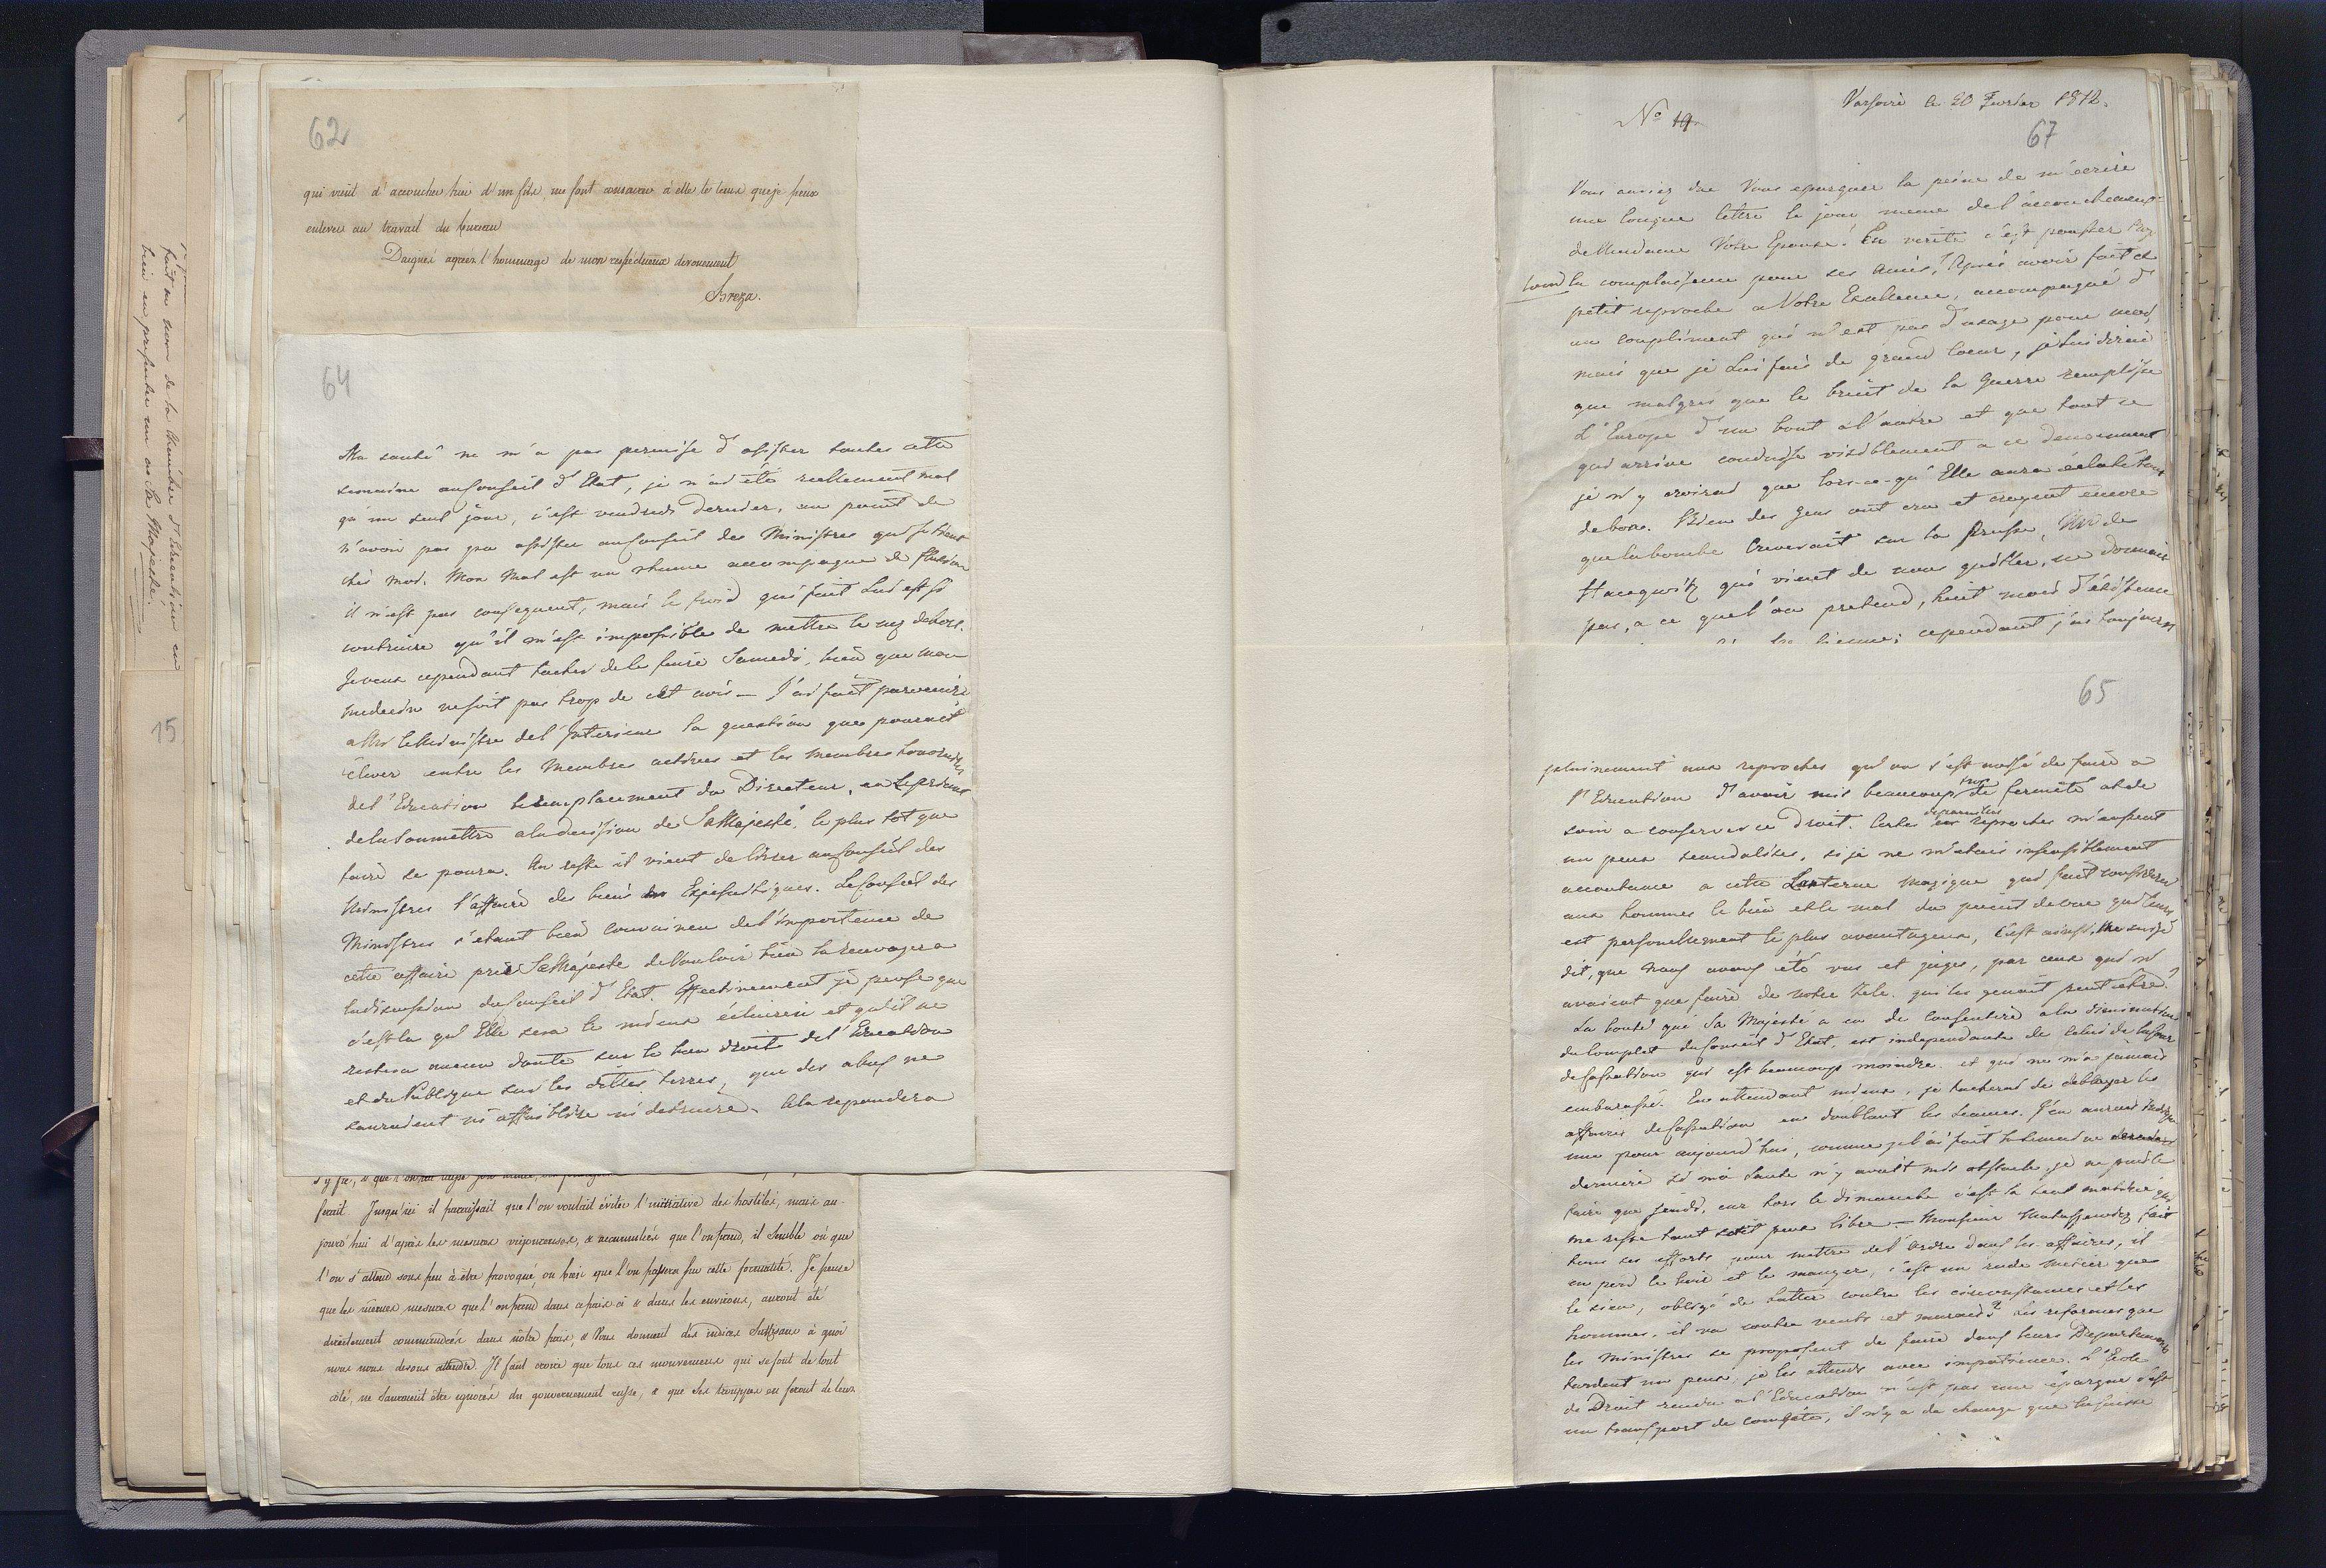 fait au nom de la Chambre d'Education en
bien en présenter un a Sa Majesté.
15
62
qui vient d'accoucher hier d'un fils, me font consacrer à elle le tems que je peux
enlever au travail du bureau
Daignés agréer l'hommage de mon respectueux devouement
Breza.
64
Ma santé ne m'a pas permise d'assister toutes cette
semaine au Conseil d'Etat, je n'ai été reellement mal
qu'un seul jour, c'est vendredi dernier, au point de
n'avoir pas pu assister au Conseil des Ministres qui se tient
chés moi. Mon mal est un rhume accompagné de fluxion
il n'est pas consequent, mais le froid qui fait lui est si
contraire qu'il m'est impossible de mettre le nez dehors.
Je veux cependant tacher de le faire Samedi, bien que mon
medecin ne soit pas trop de cet avis — J'ai fait parvenir
a Mr le Ministre de l'Interieur la question que pourait
élever entre les Membres actives et les membres honoraires
de l'Education le remplacement du Directeur, en
de la soumettre a la decision de Sa Majesté, le plus tôt que
faire se poura. Au reste il vient de livrer au Conseil des
Ministres l'affaire des biens Exjesuitiques. Le Conseil des
Ministres s'etant bien convaincu de l'importance de
cette affaire prie Sa Majesté de Vouloir bien la renvoyer a
la discussion du Conseil d'Etat. Effectivement je pense que
c'est la qu'Elle sera le mieux éclaircie et qu'il ne
restera aucun doute sur le bon droit de l'Education
et du Publique sur les dittes terres, que des abus ne
sauraient ni affaiblire ni detruire. Cela repondera
ferait Jusqu'ici il paraissait que l'on voulait éviter l'initiative des hostilités, mais au-
jourd'hui d'après les mesures vigoureuses, & accumulées que l'on prend, il semble ou que
l'on s'attend sous peu à être provoqué, ou bien que l'on passera sur cette formalité. Je pense
que les mêmes mesures que l'on prend dans ce pais ci & dans les environs, auront été
directement commandés dans nôtre pais, & Vous donnent des indices suffisans à quoi
nous nous devons attendre. Il faut croire que tous ces mouvemens qui se font de tout
côté, ne sauraient être ignorés du gouvernement russe, & que ses trouppes en feront de leur
No 19
Varsovie le 20 Fevrier 1812.
67
Vous auriez du Vous epargner la peine de m'écrire
une longue lettre le jour meme de l'accouchement
de Madame Votre Epouse. En verité c'est pousser trop
loin la complaisance pour ses Amis. Après avoir fait ce
petit reproche a Votre Excellence, accompagné d'
un compliment qui n'est pas d'usage pour moi,
mais que je Lui fais de grand Coeur, je Lui dirai
que malgré que le bruit de la Guerre remplisse
l'Europe d'un bout a l'autre et que tout ce
qui arrive conduise visiblement a ce denouement
je n'y croirai que lors-ce-qu'Elle aura éclaté tout
de bon. Bien des gens ont cru et croyent encore
que la bombe Creverait sur la Prusse, Mr de
Haugwitz qui vient de nous quitter, ne donnait
pas, a ce que l'on pretend, huit mois d'éxistence
cependant j'ai toujours
65
pleinement aux reproches qu'on s'est avisé de faire a
l'Education d'avoir mis beaucoup trop de fermeté et de
soin a conserver ce droit. Certes de pareilles reproches m'eussent
un peux scandalisés, si je ne m'etais insensiblement
accoutumé a cette Lanterne magique qui fait considerer
aux hommes le bien et le mal du point de vue qui leurs
est personellement le plus avantageux, c'est ainsi,
dit, que nous avons été vus et jugés, par ceux qui n'
avaient que faire de notre Zele. qui les genait peut être.
La bonté qué Sa Majesté a eu de consentire a la diminution
du Complet du Conseil d'Etat, est independante de celui de la Cour
de Cassation qui est beaucoup moindre. et qui ne m'a jamais
embarassé. En attendant même, je tacherai de deblayer les
affaires de Cassation en doublant les Seances. J'en aurais indiqué
une pour aujourd'hui, comme je l'ai fait la semaine
derniere si ma Santé n'y avait mis obstacle, je ne puis le
faire que jeudi, car hors le dimanche c'est la seul matinée qui
me reste tant soit peux libre. — Monsieur Matuszewitz fait
tous ses efforts pour mettre de l'ordre dans les affaires, il
en perd le boir et le manger, c'est un rude metier que
le sien, obligé de lutter contre les circonstances et les
hommes, il va contre vents et marrées. Les reformes que
les Ministres se proposent de faire dans leurs Departements
tardent un peux, je les attends avec impatience. L'Ecole
de Droit rendu a l'Education n'est pas une épargne c'est
un transport de comptes, il n'y a de changé que la caisse